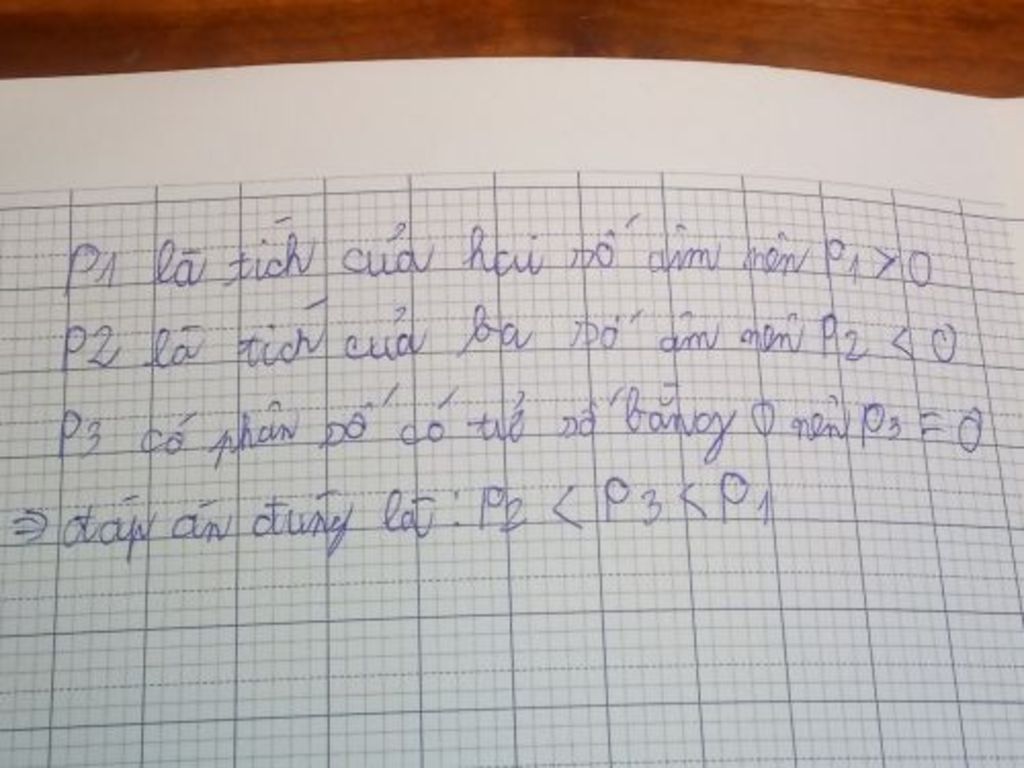 P1 là tích của hai số âm nên P1 > 0
P2 là tích của ba số âm nên P2 < 0
P3 có phân số có tử số bằng 0 nên P3 = 0
⇒ đáp án đúng là: P2 < P3 < P1